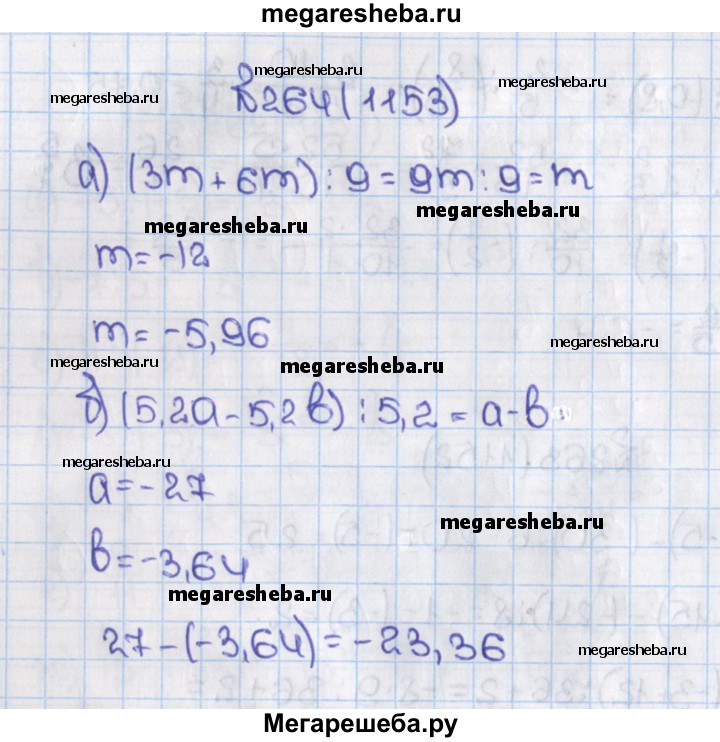 megaresheba.ru
megaresheba.ru
megaresheba.ru
megaresheba.ru
№264(1153)
а) (3m + 6m) : 9 = 9m : 9 = m
megaresheba.ru
megaresheba.ru
m = -12
m = -5,96
megaresheba.ru
megaresheba.ru
megaresheba.ru
б) (5,2a - 5,2в) : 5,2 = a-в
megaresheba.ru
megaresheba.ru
a = -27
megaresheba.ru
в = -3,64
megaresheba.ru
27 - (-3,64) = -23,36
megaresheba.ru
Мегарешеба.ру